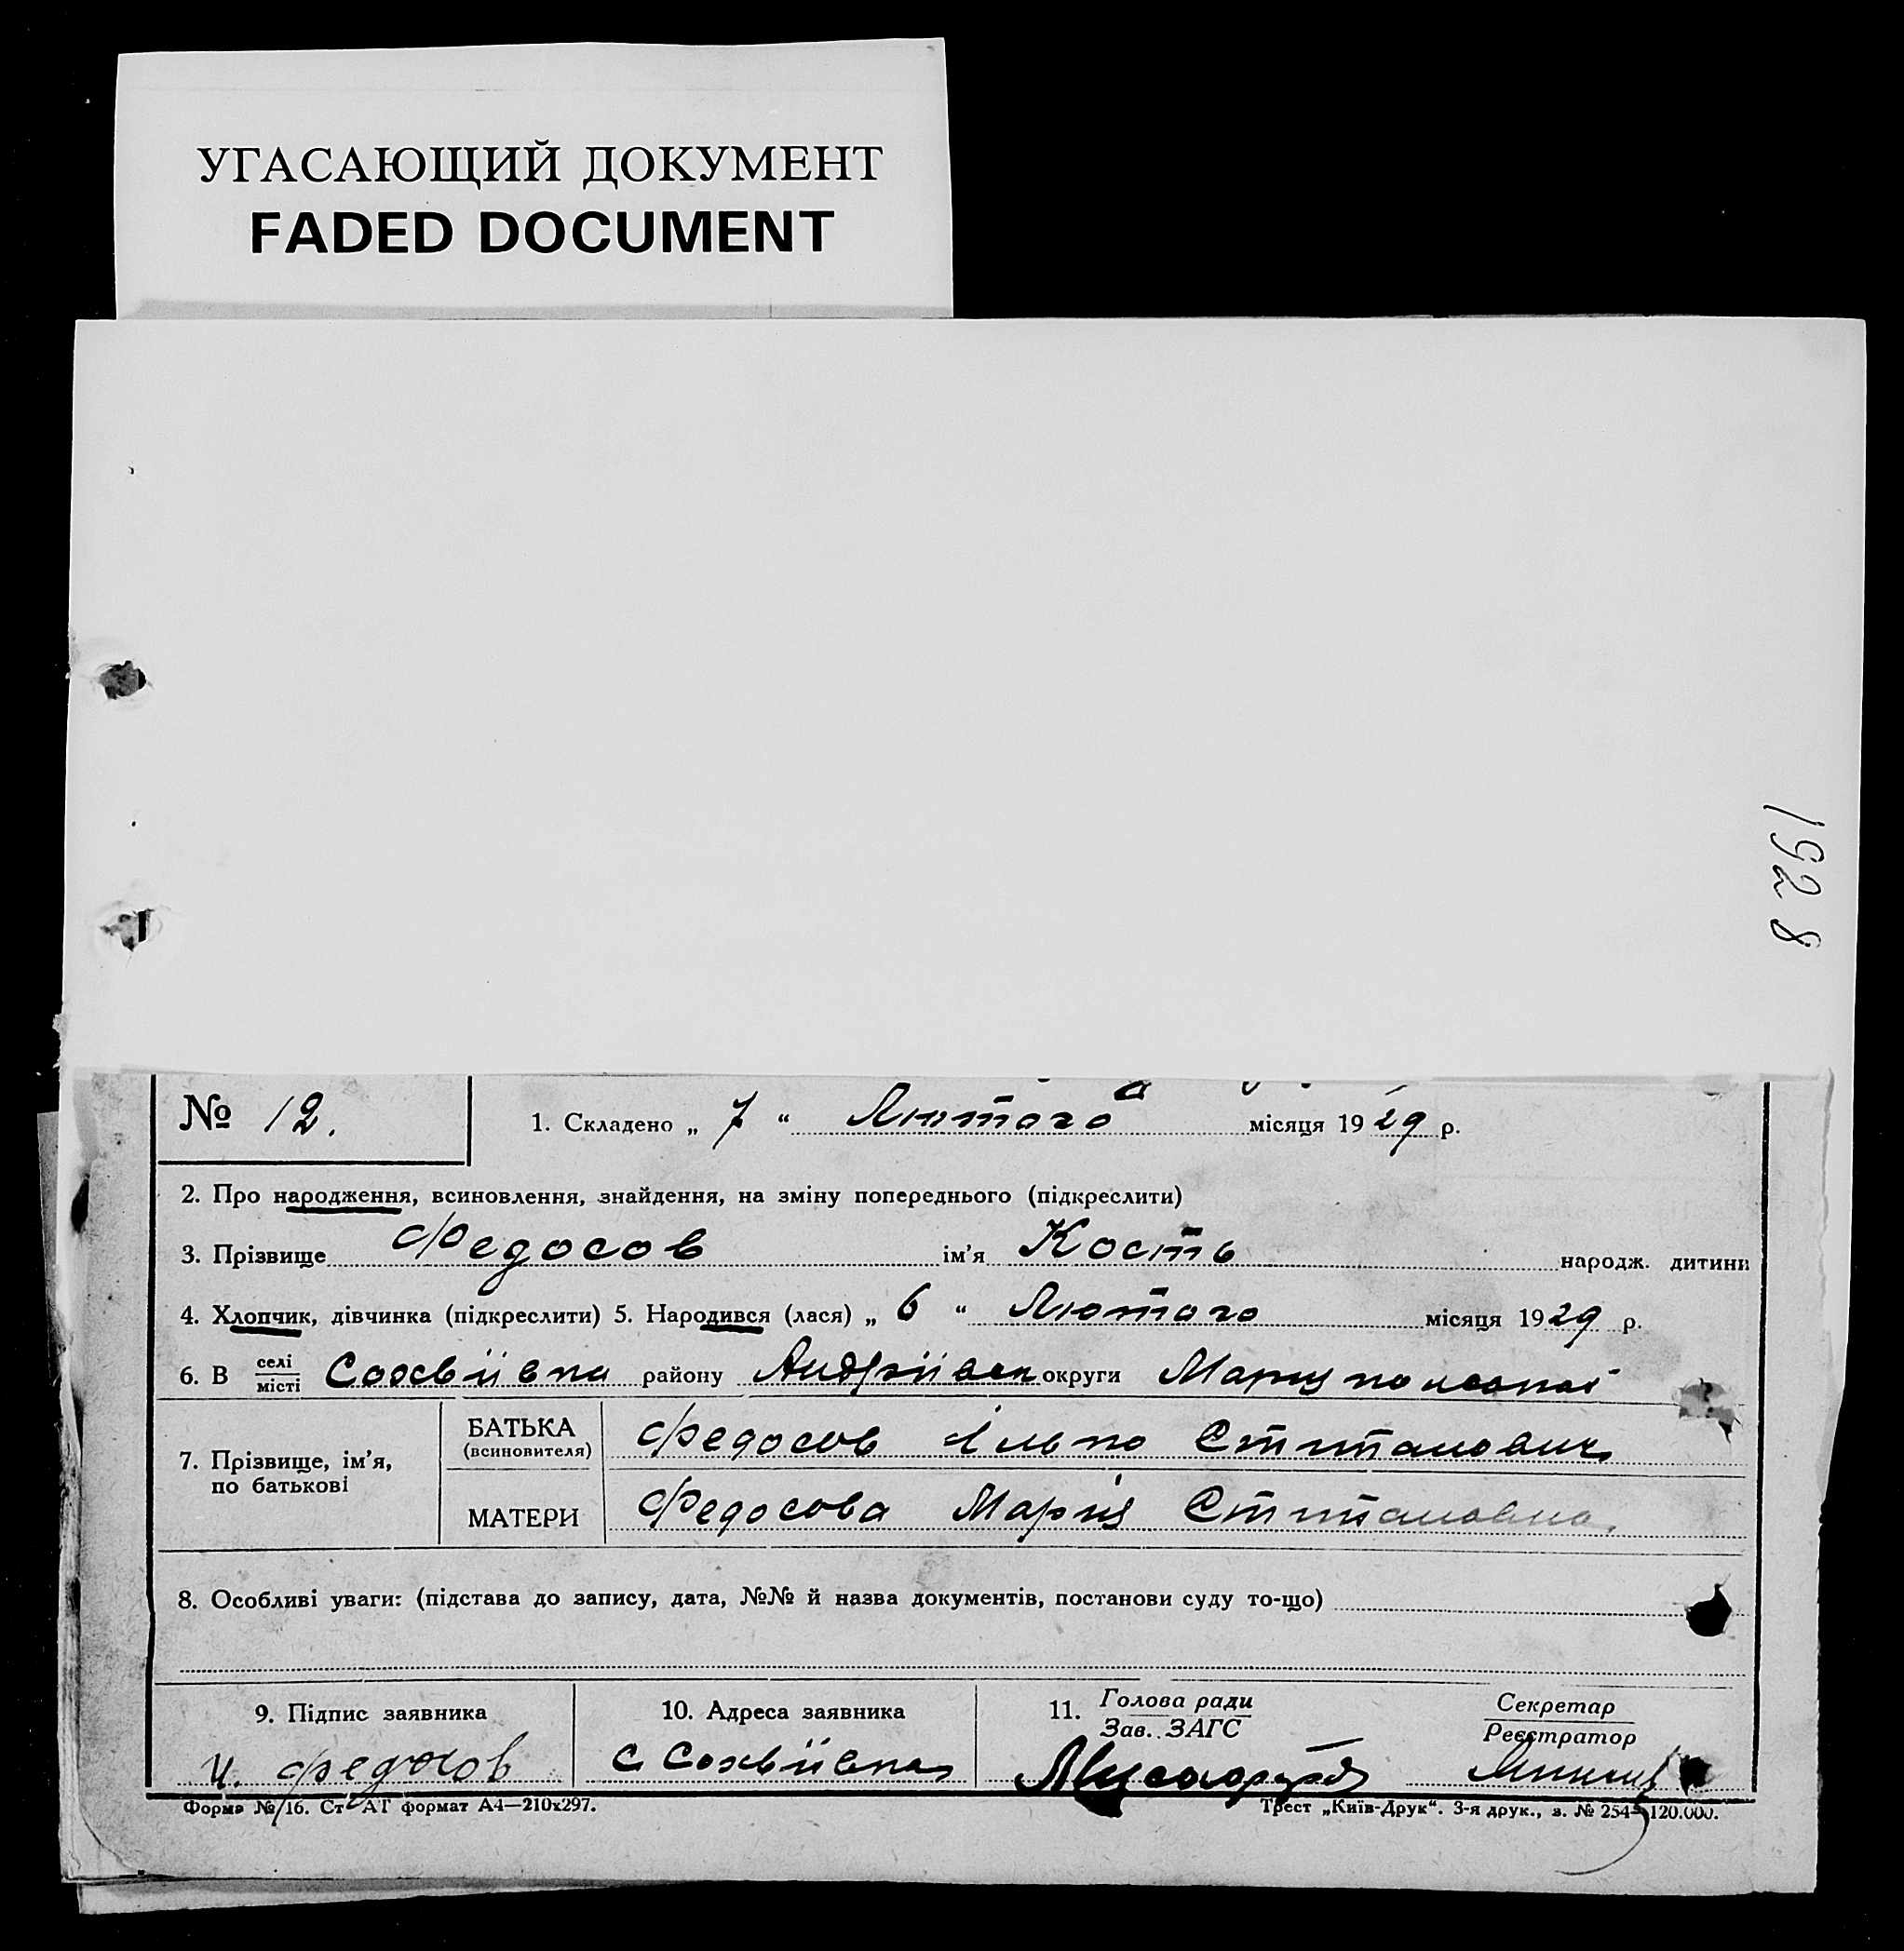 УГАСАЮЩИЙ ДОКУМЕНТ
FADED DOCUMENT
1928
№ 12.
1. Складено „ 7 “ Лютого місяця 1929 р.
2. Про народження, всиновлення, знайдення, на зміну попереднього (підкреслити)
3. Прізвище Федосов ім'я Кость народж. дитини
4. Хлопчик, дівчинка (підкреслити) 5. Народився (лася) „ 6 “ Лютого місяця 1929 р.
6. В селі місті району Андріївск округи
7. Прізвище, ім'я, по батькові
БАТЬКА (всиновителя) Федосов Ілько
МАТЕРИ Федосова Марія
8. Особливі уваги: (підстава до запису, дата, №№ й назва документів, постанови суду то-що)
9. Підпис заявника
10. Адреса заявника
11. Голова ради Зав. ЗАГС
Секретар Реєстратор
И. Федосов с
Форма №16. Ст АТ формат А4—210х297.
Трест „Київ-Друк“. 3-я друк., з. № 254 120.000.